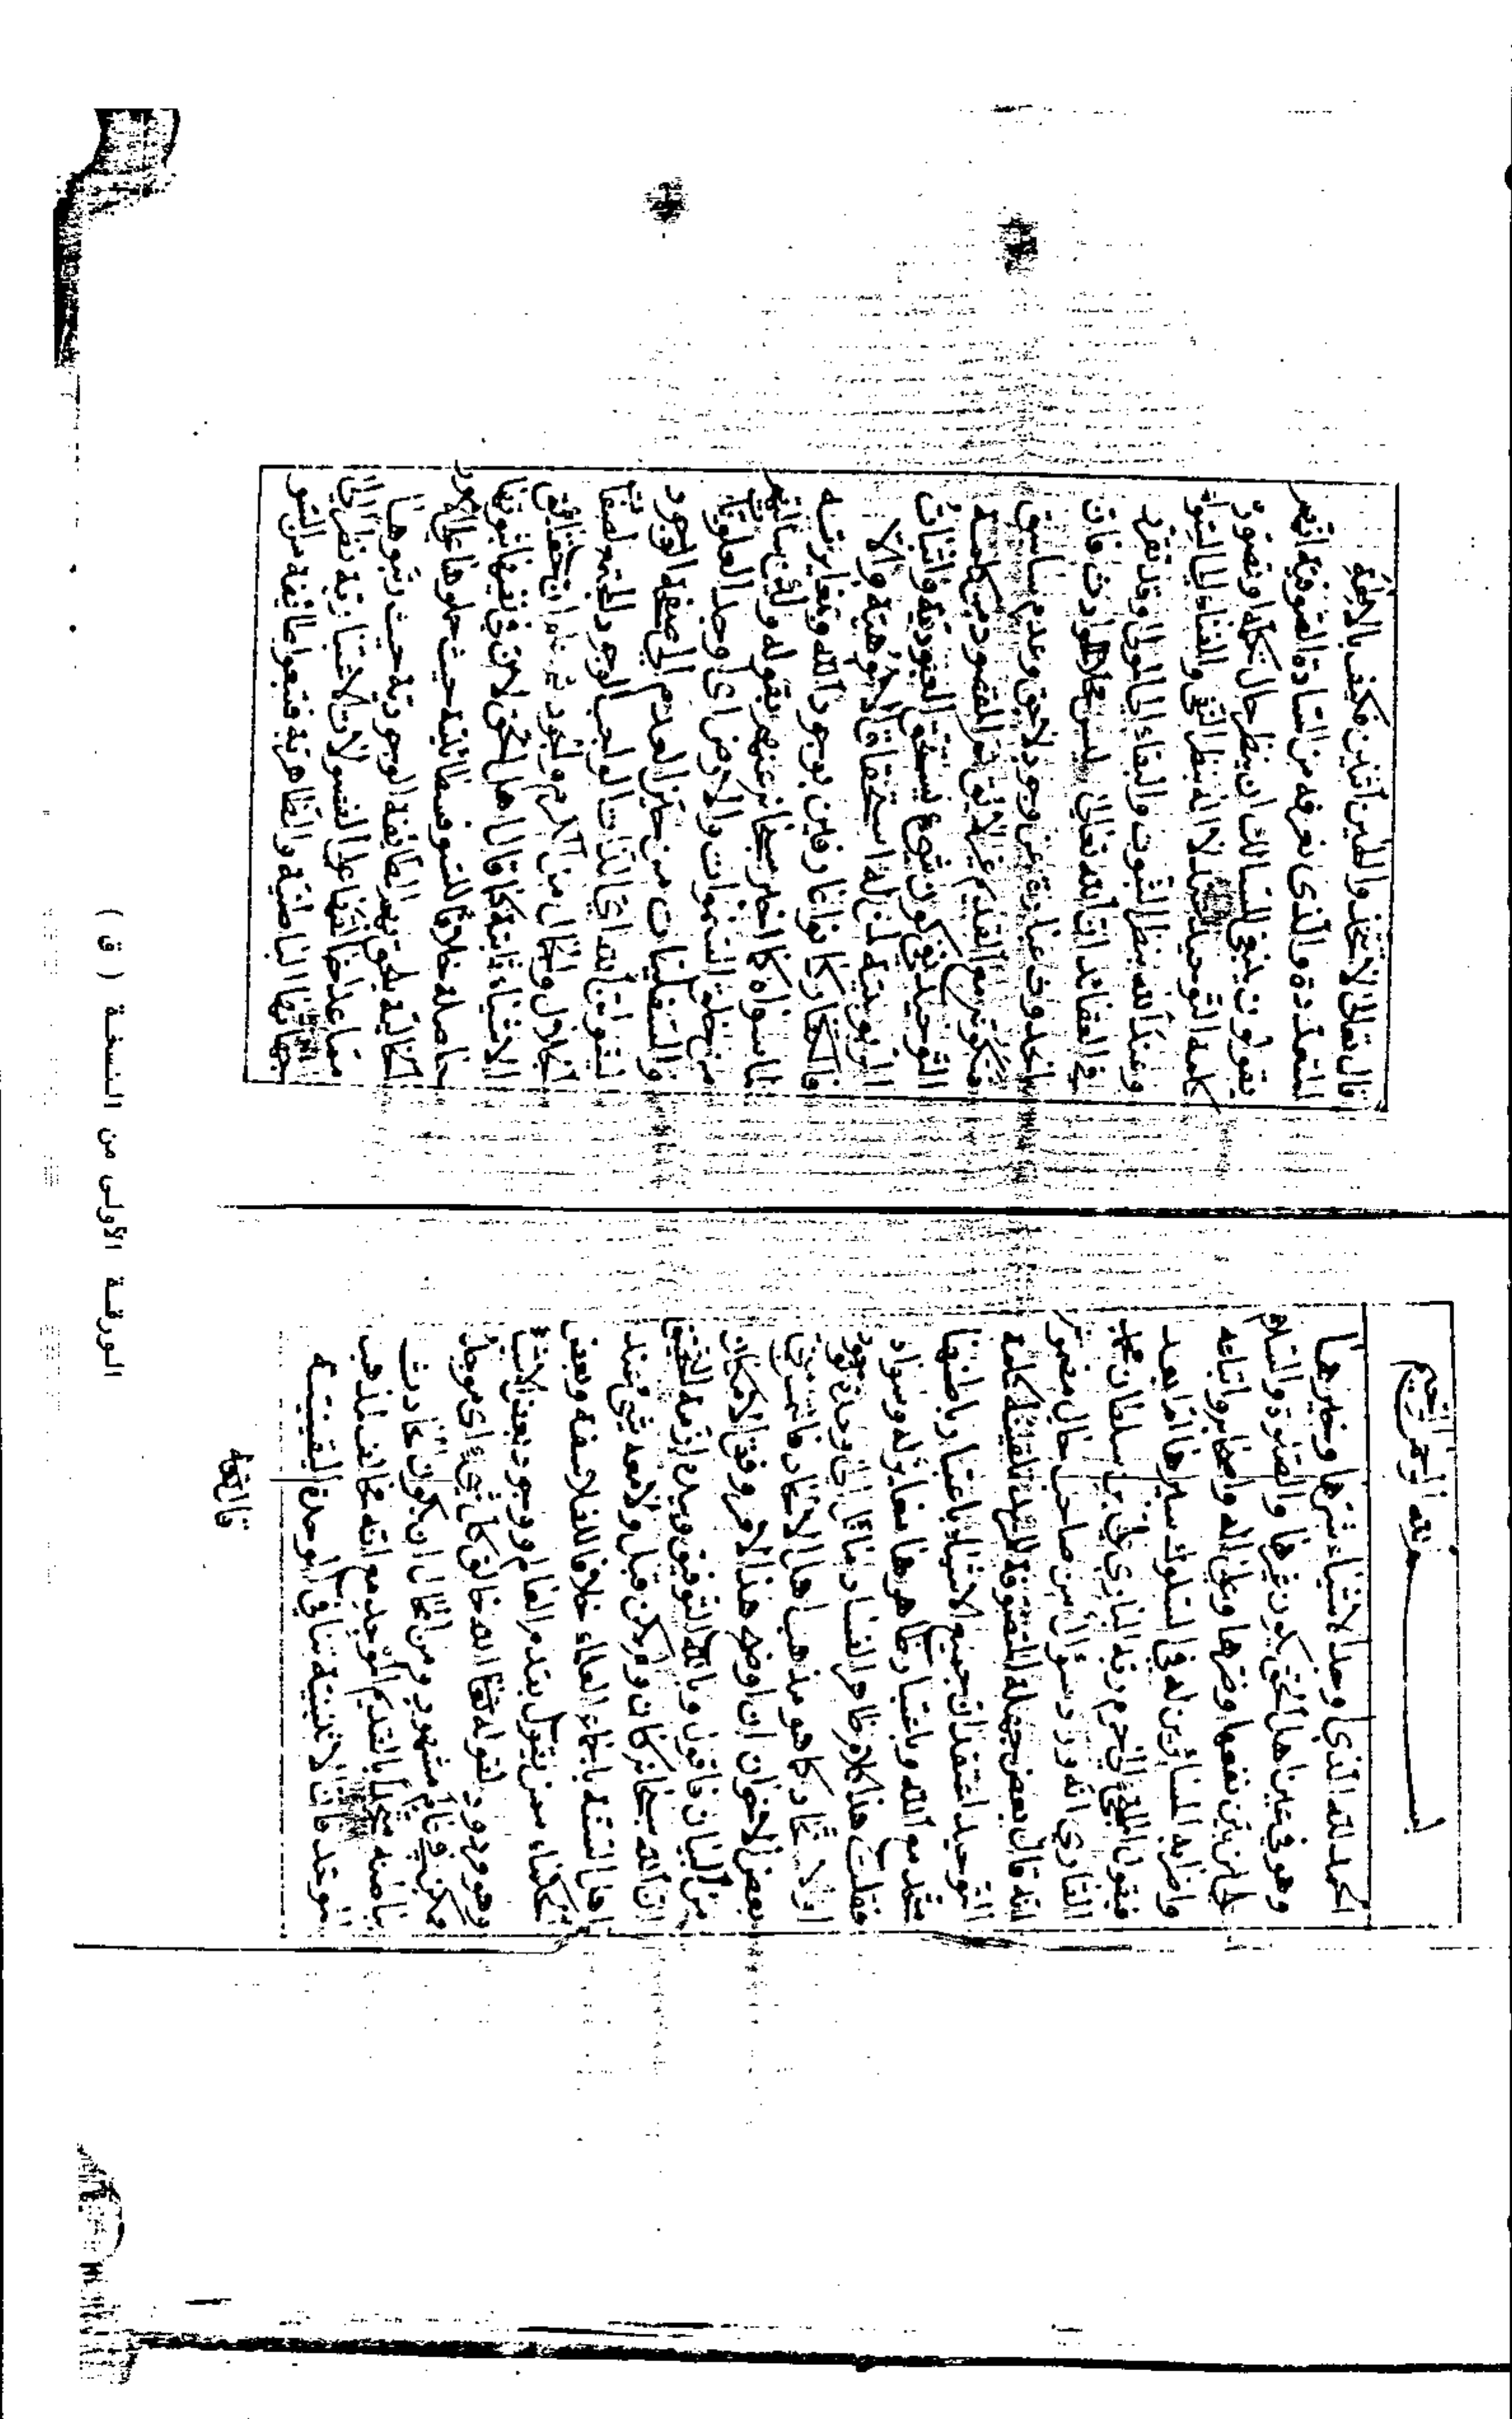 بسم الله الرحمن الرحيم
الحمد لله الذي أوجد الأشياء شرها وخيرها
وهو في عين أهل الحق يكون غيرها والصلوة والسلام
على من بين نفعها وضرها وعلى اله واصحابه واتباعه
واحزابه السائرين له في السلوك سيرها اما بعد
فيقول الملتجي الى حرم ربه الباري علي بن سلطان محمد
القاري انه ورد سؤال من صاحب حال مضمونه
انه قال بعض جهلة المتصوفة للمريد عند تلقينه كلمة
التوحيد اعتقد ان جميع الاشياء باعتبار باطنها
متحد مع الله وباعتبار ظاهرها مغاير له وسواه
فقلت هذا كلام ظاهر الفساد مائل الى وحدة الوجود
او الاتحاد كما هو مذهب اهل الالحاد فالتمس مني
بعض الاخوان ان اوضح هذا الامر وفق الامكان
من البيان فاقول وبالله التوفيق وبيده ازمة التحقيق
ان الله سبحانه كان ولم يكن قبله ولا معه شيء عند
اهل السنة باجماع العلماء خلافا للفلاسفة وبعض
الحكماء ممن يقول بقدم العالم ووجود بعض الاشياء
وهو مردود لقوله تعالى الله خالق كل شيء اي موجد
ممكن في عالم مشهود ومن المحال ان يكون الحادث
باطنه متحدا بالقديم الموجد مع انه مخالف لمذهب
الموحد فان الاثنينية تنافي الوحدة اليقينية
قال تعالى
قال تعالى لا تتخذوا الهين اثنين فكيف بالالهة
المتعددة والذي نعرفه من السادة الصوفية انهم
يقولون ينبغي للسالك ان ينظر حال تكلمه وتصور
كلمة التوحيد عند لا اله بنظر النفي والفناء الى السوى
وعند الا الله بنظر الثبوت والبقاء الى المولى وقد تقرر
في العقائد ان الله تعالى ليس محلا للحوادث فان
الحدوث عبارة عن وجود لاحق وعدم سابق
فكونه مع القدم غير لائق ثم المقصود من كلمة
التوحيد نفي كون شيء يستحق العبودية واثبات
الربوبية لمن له استحقاق الالوهية والا
فالكفار كانوا عارفين بوجود الله ومغايرته
لما سواه كما اخبر سبحانه عنهم بقوله ولئن سالتهم
من خلق السموات والارض اي اوجد العلويات
والسفليات من حيز العدم الى صفة الوجود
ليقولن الله اي الذات الواجب الوجود المجتمع لصفات
الجلال والجمال من الكرم والجود ثم ان حقائق
الاشياء ثابتة كما قال اهل الحق لان في نفيها ثبوتها
حاصلة خلافا للسوفسطائية حيث حملوها على الامور
الخيالية ويقرب منهم الطائفة الوجودية حيث رتبوها
جهاتها الباطنية والظاهرية فتبعوا طائفة من السو
الورقة الأولى من النسخة ( ق )